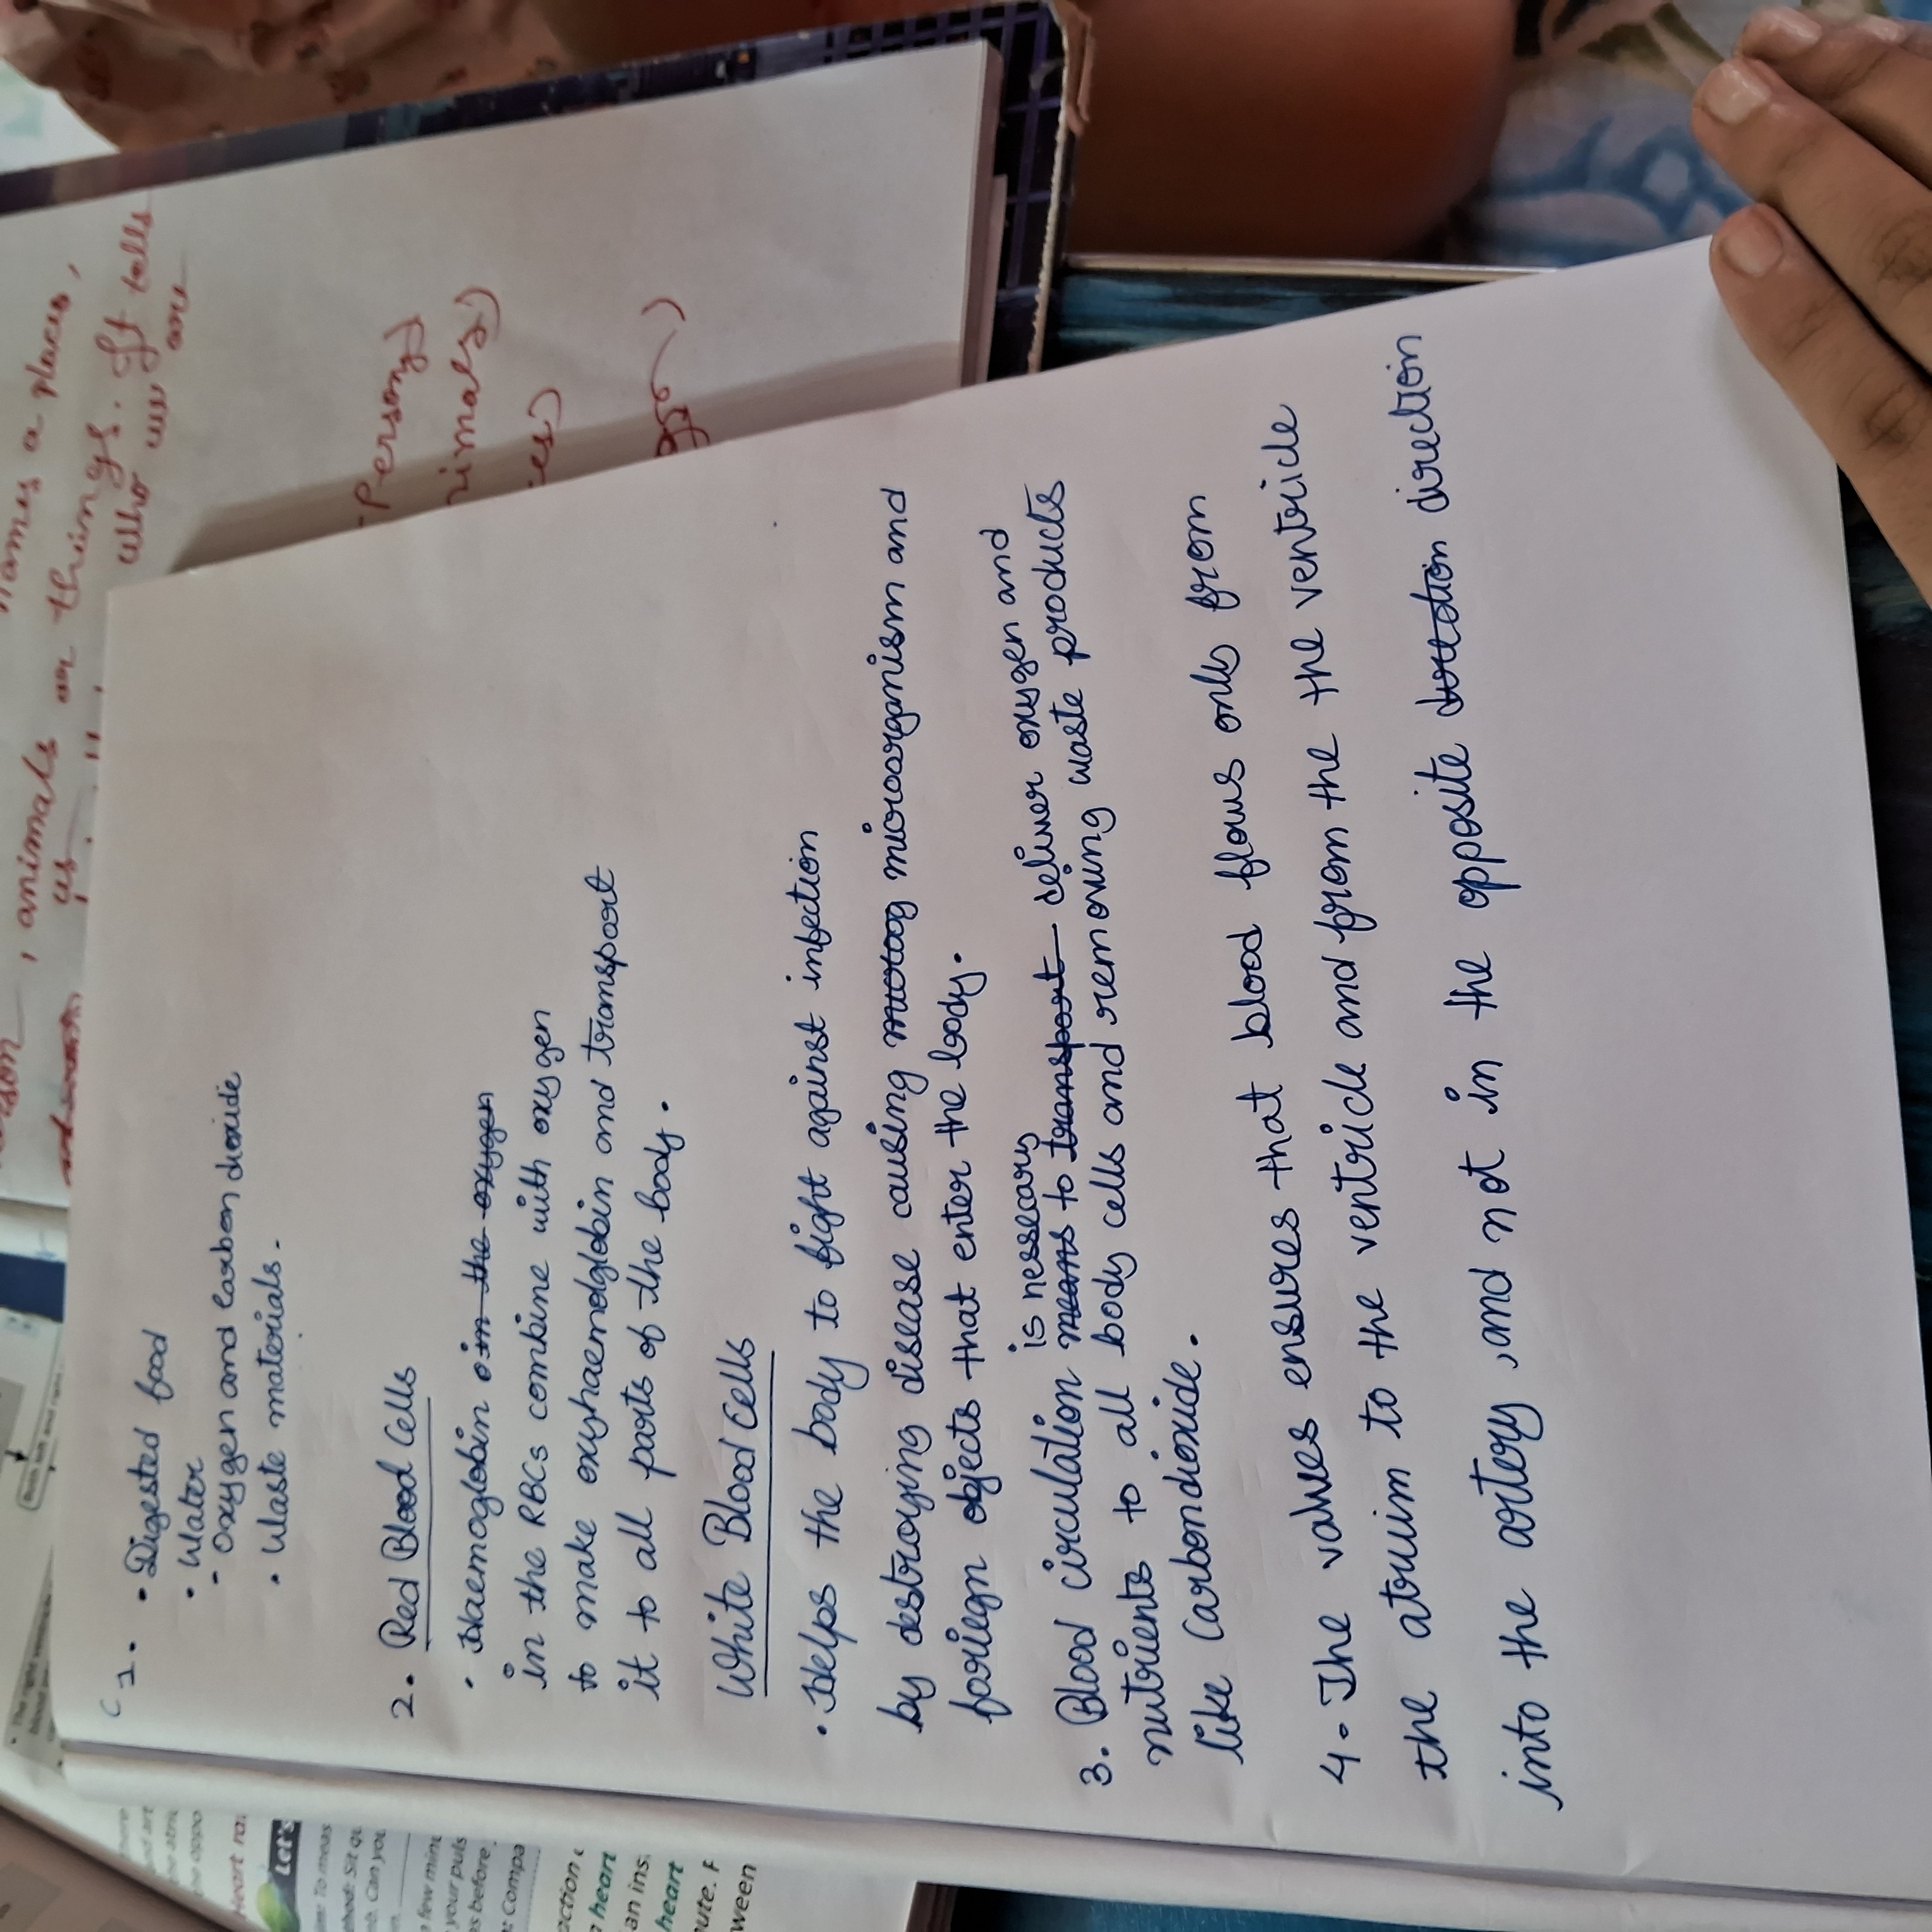 names a places,
, animals or things. It tells
us who we are
-Person)
nimals)
es)
C 1. • Digested food
• Water
- Oxygen and carbon dioxide
• Waste materials.
2. Red Blood Cells
• Haemoglobin in the oxygen
in the RBCs combine with oxygen
to make oxyhaemolglobin and transport
it to all parts of the body.
White Blood Cells
• Helps the body to fight against infection
by destroying disease causing microog microorganism and
foriegn objects that enter the body.
is nessecary
3. Blood circulation means to transport deliver oxygen and
nutrients to all body cells and removing waste products
like Carbondioxide.
4. The valves ensures that blood flows only from
the atruim to the ventricle and from the the ventricle
into the artery, and not in the opposite direction direction
Heart ra
Let's
To meas
Sit qu
Can you
few minu
your puls
s before
Compa
ction
heart
an ins
heart
ute. F
ween